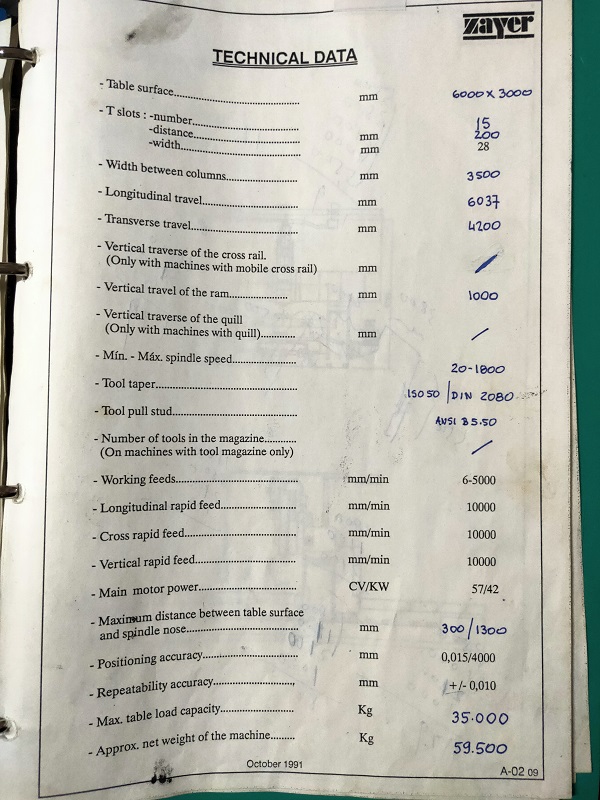 zayer
TECHNICAL DATA
- Table surface.................................... mm 6000 x 3000
- T slots : -number.............................. 15
-distance............................ mm 200
-width................................ mm 28
- Width between columns........................ mm 3500
- Longitudinal travel............................. mm 6037
- Transverse travel................................ mm 4200
- Vertical traverse of the cross rail.
(Only with machines with mobile cross rail) mm /
- Vertical travel of the ram................. mm 1000
- Vertical traverse of the quill
(Only with machines with quill)............ mm /
- Mín. - Máx. spindle speed................... 20-1800
- Tool taper......................................... ISO 50 / DIN 2080
- Tool pull stud..................................... ANSI B5.50
- Number of tools in the magazine..........
(On machines with tool magazine only) /
- Working feeds..................................... mm/min 6-5000
- Longitudinal rapid feed...................... mm/min 10000
- Cross rapid feed................................. mm/min 10000
- Vertical rapid feed............................. mm/min 10000
- Main motor power............................ CV/KW 57/42
- Maximum distance between table surface
and spindle nose................................. mm 300/1300
- Positioning accuracy............................ mm 0,015/4000
- Repeatability accuracy........................ mm +/- 0,010
- Max. table load capacity..................... Kg 35.000
- Approx. net weight of the machine........ Kg 59.500
October 1991
A-02 09